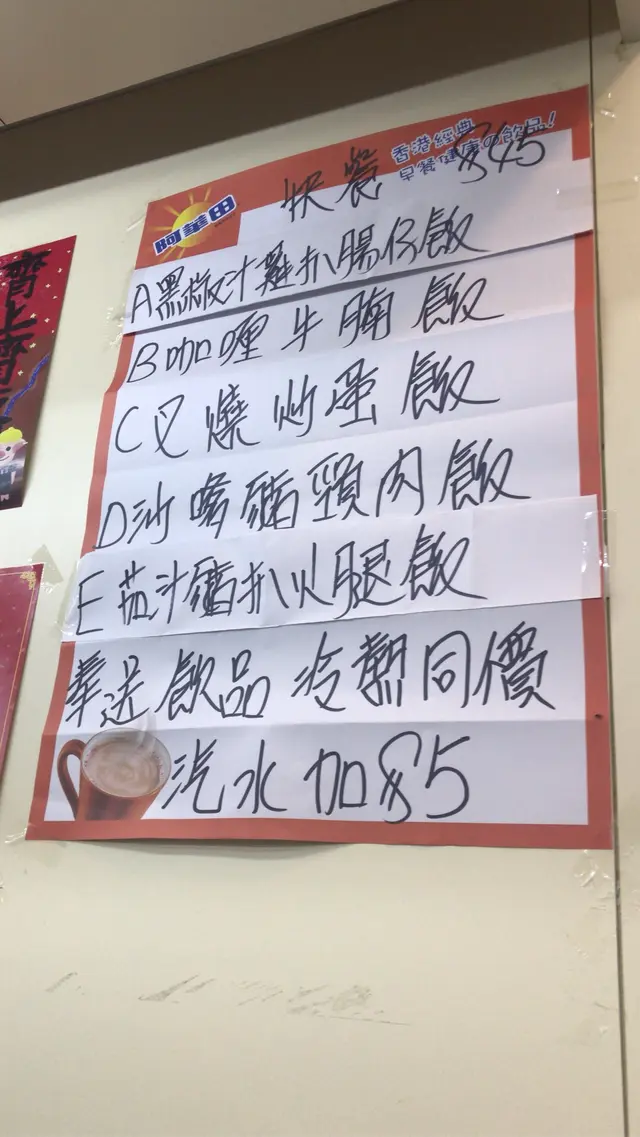 阿華田
香港經典
早餐健康の飲品!
快餐 $45
A黑椒汁雞扒腸仔飯
B咖喱牛腩飯
C叉燒炒蛋飯
D沙嗲豬頸肉飯
E茄汁豬扒火腿飯
奉送飲品冷熱同價
汽水加$5